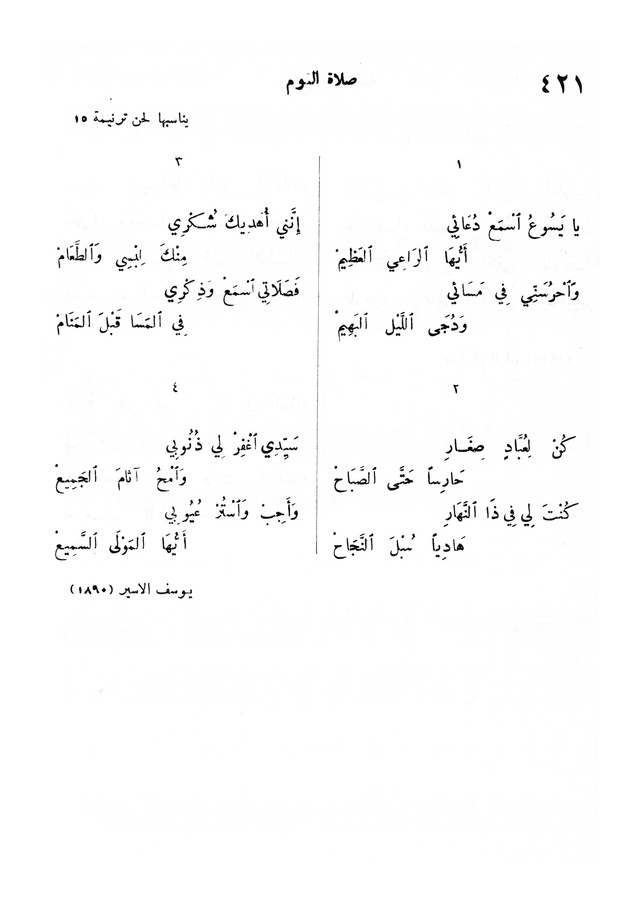 ٤٢١
صلاة النوم
يناسبها لحن ترنيمة ١٥
١
يا يَسُوعُ ٱسْمَعْ دُعَائِي
أَيُّهَا ٱلرَاعِي ٱلعَظِيمْ
وَٱحْرُسَنِّي فِي مَسَائِي
وَدُجَى ٱللَّيْلِ ٱلبَهِيمْ
٢
كُنْ لِعُبَّادٍ صِغَـارِ
حَارِساً حَتَّى ٱلصَّبَاحْ
كُنْتَ لِي فِي ذَا ٱلنَّهَارِ
هَادِياً سُبْلَ ٱلنَّجَاحْ
٣
إِنَّنِي أُهْدِيكَ شُـكْرِي
مِنْكَ لِبْسِي وَٱلطَّعَامْ
فَصَلَاتِي ٱسْمَعْ وَذِكْرِي
فِي ٱلمَسَا قَبْلَ ٱلمَنَامْ
٤
سَيِّدِي ٱغْفِرْ لِي ذُنُوبِي
وَٱمْحُ آثامَ ٱلجَمِيعْ
وَأَجِبْ وَٱسْتُرْ عُيُوبِي
أَيُّهَا ٱلمَوْلَى ٱلسَّمِيعْ
يوسف الاسير (١٨٩٠)